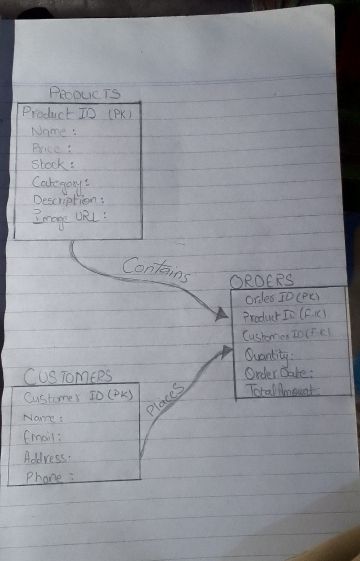 PRODUCTS
Product ID (PK)
Name:
Price:
Stock:
Category:
Description:
Image URL:
Contains
ORDERS
Order ID (PK)
Product ID (F.K)
Customer ID (F.K)
Quantity:
Order Date:
Total Amount:
Places
CUSTOMERS
Customer ID (PK)
Name:
Email:
Address:
Phone: